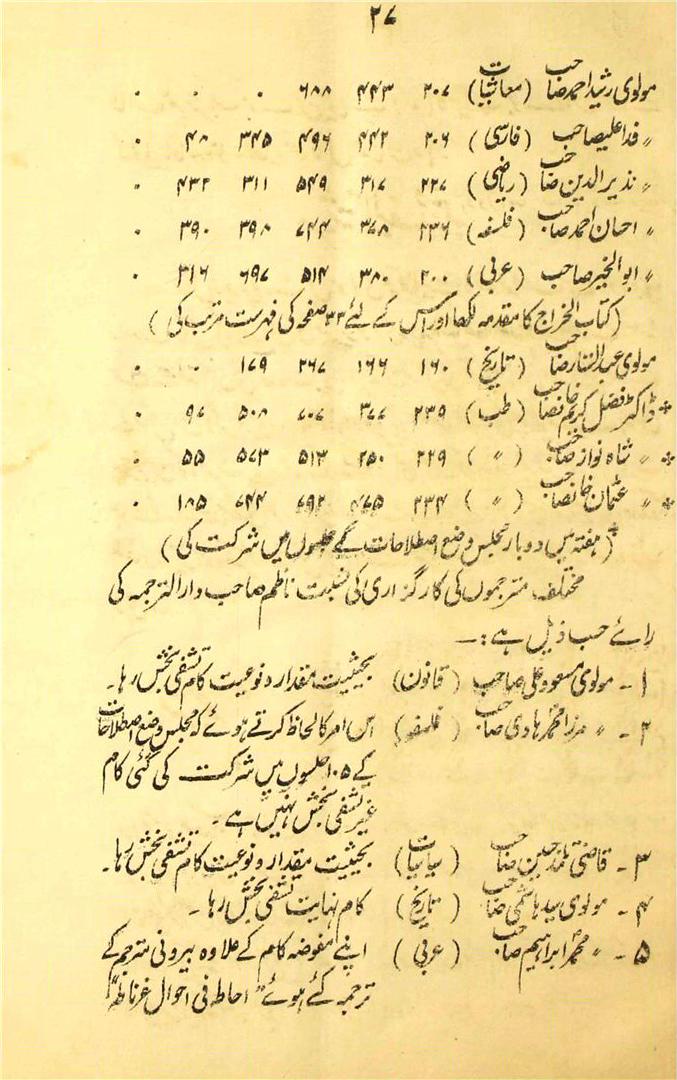 ۲۷
مولوی رشید احمد صاحب (معاشیات) ۲۰۷ ۴۴۳ ۶۸۸ ۰ ۰ ۰
〃 فدا علی صاحب (فارسی) ۲۰۶ ۴۴۲ ۴۹۶ ۳۴۵ ۴۸ ۰
〃 نذیر الدین صاحب (ریاضی) ۲۲۷ ۳۱۷ ۵۴۹ ۳۱۱ ۴۳۲ ۰
〃 احسان احمد صاحب (فلسفہ) ۲۳۶ ۳۷۸ ۷۴۴ ۳۹۸ ۳۹۰ ۰
〃 ابو الخیر صاحب (عربی) ۲۰۰ ۳۸۰ ۵۱۴ ۶۹۷ ۳۱۶ ۰
(کتاب الخراج کا مقدمہ لکھا اور اس کے لئے ۳۳ صفحہ کی فہرست مرتب کی)
مولوی عبد الستار صاحب (تاریخ) ۱۶۰ ۱۶۶ ۲۶۷ ۱۷۹ ۰ ۰
* ڈاکٹر فضل کریم خانصاحب (طب) ۲۳۹ ۳۷۷ ۷۰۷ ۵۰۸ ۹۷ ۰
* 〃 شاہ نواز صاحب (〃) ۲۲۹ ۲۵۰ ۵۱۳ ۵۷۳ ۵۵ ۰
* 〃 عثمان خانصاحب (〃) ۲۳۴ ۴۷۵ ۷۹۲ ۷۴۴ ۱۸۵ ۰
(* ہفتہ میں دو بار مجلس وضع اصطلاحات کے جلسوں میں شرکت کی)
مختلف مترجموں کی کارگزاری کی نسبت ناظم صاحب دار الترجمہ کی
رائے حسب ذیل ہے :۔
۱۔ مولوی مسعود علی صاحب (قانون) بحیثیت مقدار و نوعیت کام تشفی بخش رہا۔
۲۔ 〃 مرزا محمد ہادی صاحب (فلسفہ) اس امر کا لحاظ کرتے ہوئے کہ مجلس وضع اصطلاحات
کے ۱۰۵ جلسوں میں شرکت کی گئی کام
غیر تشفی بخش نہیں ہے۔
۳۔ قاضی تلمذ حسین صاحب (سیاسیات) بحیثیت مقدار و نوعیت کام تشفی بخش رہا۔
۴۔ مولوی سید ہاشمی صاحب (تاریخ) کام نہایت تشفی بخش رہا۔
۵۔ 〃 محمد ابراہیم صاحب (عربی) اپنے مفوضہ کام کے علاوہ بیرونی مترجم کے
ترجمہ کئے ہوئے "احاطہ فی احوال غرناطہ"